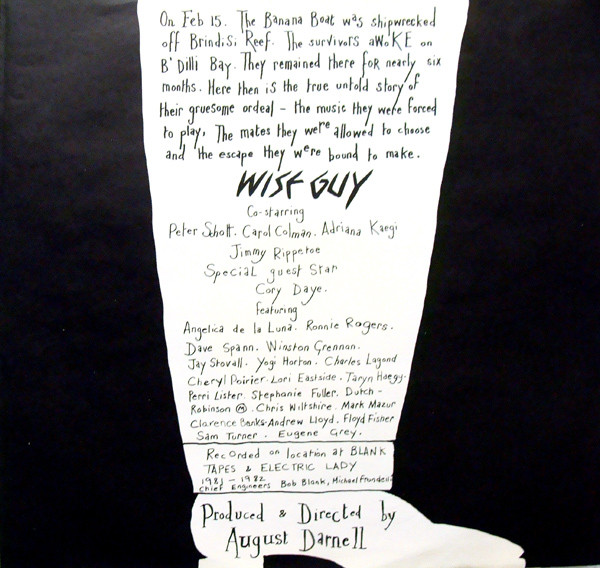 On Feb 15. The Banana Boat was shipwrecked
off Brindisi Reef. The survivors aWoKE on
B'Dilli Bay. They remained there foR nearly six
months. Here then is the true untold story of
their gruesome ordeal – the music they were forced
to play, The mates they were allowed to choose
and the escape they were bound to make.
WISE GUY
Co-starring
Peter Shott. Carol Colman. Adriana Kaegi
Jimmy Rippetoe
Special guest Star
Cory Daye.
featuring
Angelica de la Luna. Ronnie Rogers.
Dave Spann. Winston Grennan.
Jay Stovall. Yogi Horton. Charles Lagond
Cheryl Poirier. Lori Eastside. Taryn Haegy.
Perri Lister. Stephanie Fuller. Dutch –
Robinson Ⓜ. Chris Wiltshire. Mark Mazur
Clarence Banks. Andrew Lloyd. Floyd Fisher
Sam Turner. Eugene Grey.
Recorded on location at BLANK
TAPES & ELECTRIC LADY
1981 – 1982
Chief Engineers Bob Blank, Michael Frondelli
Produced & Directed by
August Darnell